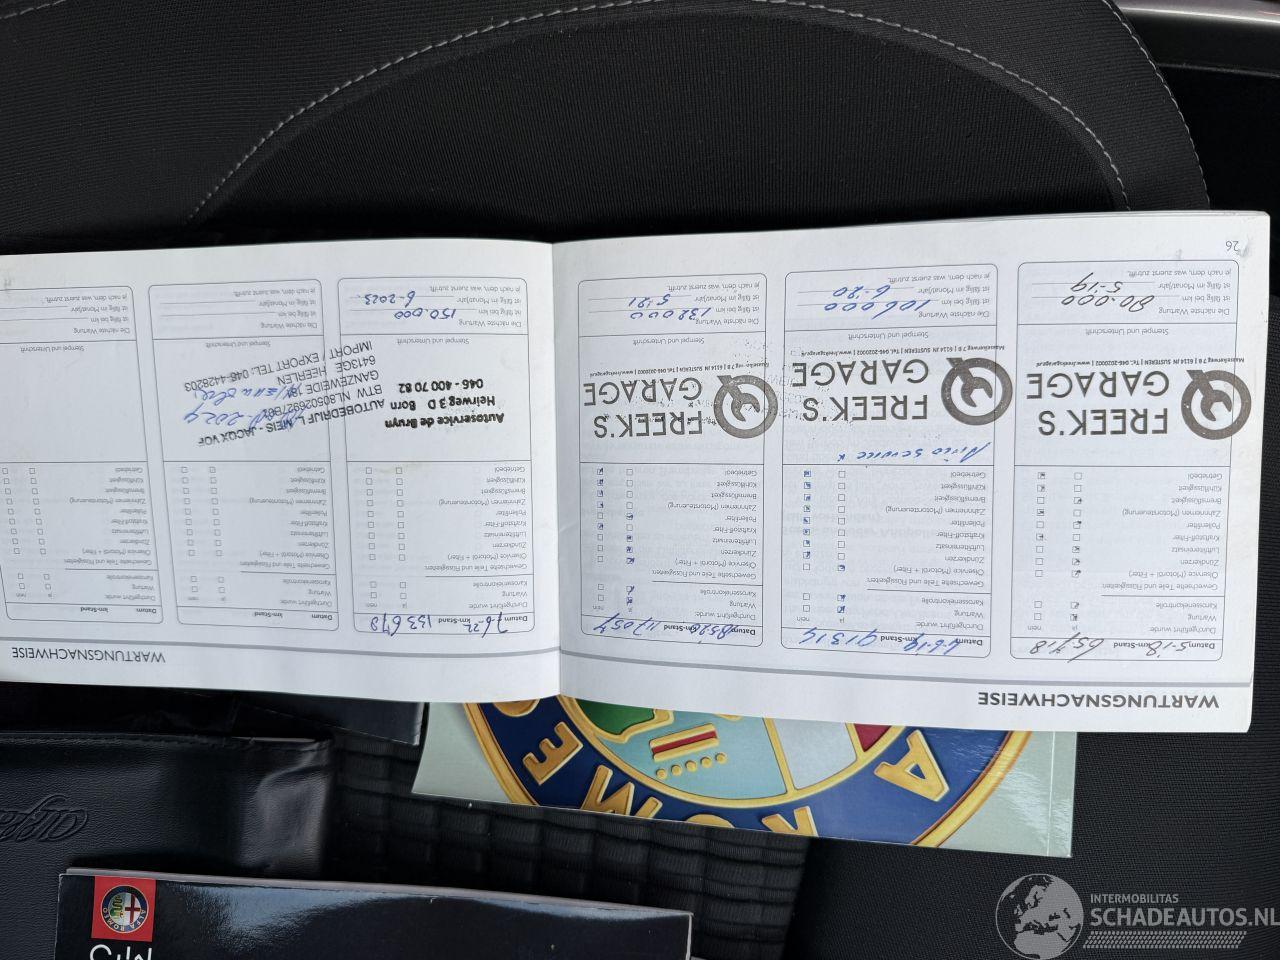 26
WARTUNGSNACHWEISE
Datum 5-'18 km-Stand 65718
Durchgeführt wurde: ja nein
Wartung
Karosseriekontrolle
Gewechselte Teile und Flüssigkeiten:
Ölservice (Motoröl + Filter)
Zündkerzen
Luftfiltereinsatz
Kraftstoff-Filter
Pollenfilter
Zahnriemen (Motorsteuerung)
Bremsflüssigkeit
Kühlflüssigkeit
Getriebeöl
FREEK'S
GARAGE
Stempel und Unterschrift
Die nächste Wartung
ist fällig bei km 80.000
ist fällig im Monat/Jahr 5-'19
je nach dem, was zuerst zutrifft.
Datum 4-6-'19 km-Stand 91314
Durchgeführt wurde: ja nein
Wartung
Karosseriekontrolle
Gewechselte Teile und Flüssigkeiten:
Ölservice (Motoröl + Filter)
Zündkerzen
Luftfiltereinsatz
Kraftstoff-Filter
Pollenfilter
Zahnriemen (Motorsteuerung)
Bremsflüssigkeit
Kühlflüssigkeit
Getriebeöl
service
FREEK'S
GARAGE
Stempel und Unterschrift
Die nächste Wartung
ist fällig bei km 106000
ist fällig im Monat/Jahr 6-'20
je nach dem, was zuerst zutrifft.
Datum km-Stand 117057
Durchgeführt wurde: ja nein
Wartung
Karosseriekontrolle
Gewechselte Teile und Flüssigkeiten:
Ölservice (Motoröl + Filter)
Zündkerzen
Luftfiltereinsatz
Kraftstoff-Filter
Pollenfilter
Zahnriemen (Motorsteuerung)
Bremsflüssigkeit
Kühlflüssigkeit
Getriebeöl
FREEK'S
GARAGE
Stempel und Unterschrift
Die nächste Wartung
ist fällig bei km 132000
ist fällig im Monat/Jahr 5-'21
je nach dem, was zuerst zutrifft.
WARTUNGSNACHWEISE
Datum 7-6-22 km-Stand 133678
Durchgeführt wurde: ja nein
Wartung
Karosseriekontrolle
Gewechselte Teile und Flüssigkeiten:
Ölservice (Motoröl + Filter)
Zündkerzen
Luftfiltereinsatz
Kraftstoff-Filter
Pollenfilter
Zahnriemen (Motorsteuerung)
Bremsflüssigkeit
Kühlflüssigkeit
Getriebeöl
Autoservice de Bruyn
Heirweg 3 D Born
046 - 400 70 82
Stempel und Unterschrift
Die nächste Wartung
ist fällig bei km 150.000
ist fällig im Monat/Jahr 6-2023
je nach dem, was zuerst zutrifft.
Datum km-Stand
Durchgeführt wurde: ja nein
Wartung
Karosseriekontrolle
Gewechselte Teile und Flüssigkeiten:
Ölservice (Motoröl + Filter)
Zündkerzen
Luftfiltereinsatz
Kraftstoff-Filter
Pollenfilter
Zahnriemen (Motorsteuerung)
Bremsflüssigkeit
Kühlflüssigkeit
Getriebeöl
AUTOBEDRIJF L. MEIS - JACQX VOF
GANZEWEIDE
6413GE HEERLEN
IMPORT / EXPORT TEL.
Stempel und Unterschrift
Die nächste Wartung
ist fällig bei km
ist fällig im Monat/Jahr
je nach dem, was zuerst zutrifft.
Datum km-Stand
Durchgeführt wurde: ja nein
Wartung
Karosseriekontrolle
Gewechselte Teile und Flüssigkeiten:
Ölservice (Motoröl + Filter)
Zündkerzen
Luftfiltereinsatz
Kraftstoff-Filter
Pollenfilter
Zahnriemen (Motorsteuerung)
Bremsflüssigkeit
Kühlflüssigkeit
Getriebeöl
Stempel und Unterschrift
Die nächste Wartung
ist fällig bei km
ist fällig im Monat/Jahr
je nach dem, was zuerst zutrifft.
A ROMEO
ALFA ROMEO
MiTo
INTERMOBILITAS
SCHADEAUTOS.NL